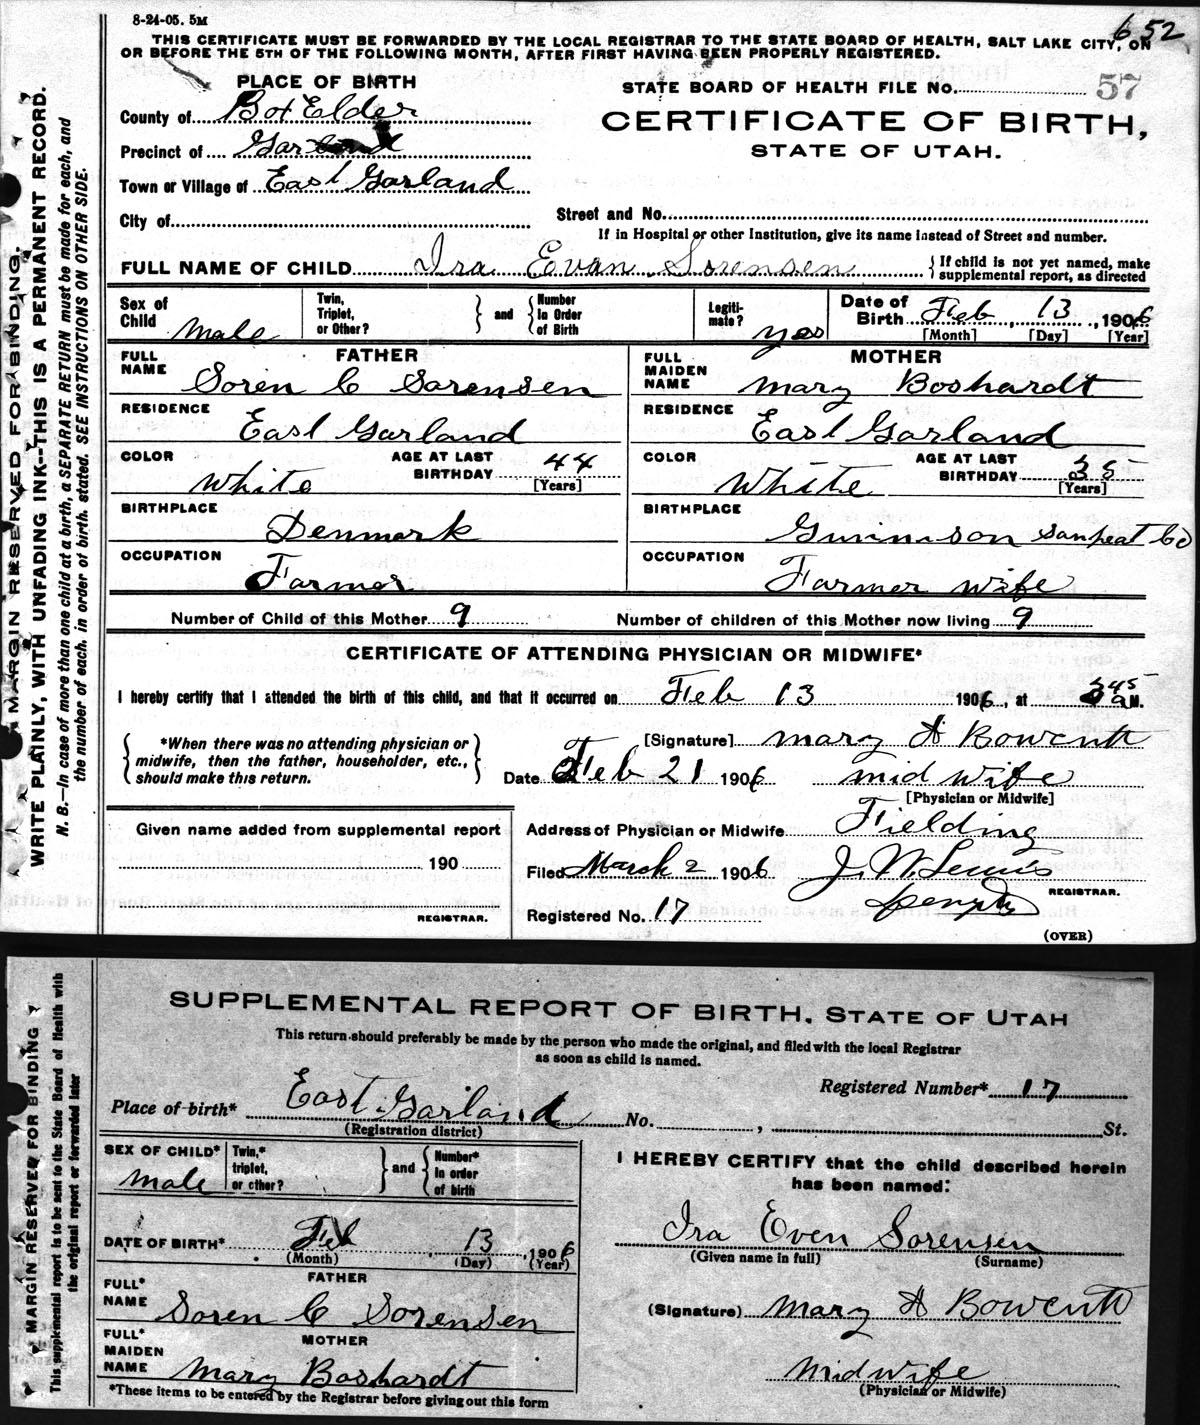 8-24-05. 5M
652
THIS CERTIFICATE MUST BE FORWARDED BY THE LOCAL REGISTRAR TO THE STATE BOARD OF HEALTH, SALT LAKE CITY, ON
OR BEFORE THE 5TH OF THE FOLLOWING MONTH, AFTER FIRST HAVING BEEN PROPERLY REGISTERED.
MARGIN RESERVED FOR BINDING.
WRITE PLAINLY, WITH UNFADING INK--THIS IS A PERMANENT RECORD.
N. B.—In case of more than one child at a birth, a SEPARATE RETURN must be made for each, and
the number of each, in order of birth, stated. SEE INSTRUCTIONS ON OTHER SIDE.
PLACE OF BIRTH
County of Box Elder
Precinct of Garland
Town or Village of East Garland
City of
STATE BOARD OF HEALTH FILE No. 57
CERTIFICATE OF BIRTH,
STATE OF UTAH.
Street and No.
If in Hospital or other Institution, give its name instead of Street and number.
FULL NAME OF CHILD Ira Evan Sorensen { If child is not yet named, make
supplemental report, as directed
Sex of Child Male
Twin, Triplet, or Other? } and { Number In Order of Birth
Legitimate? yes
Date of Birth Feb 13, 1906
[Month] [Day] [Year]
FATHER
FULL NAME Soren C Sorensen
RESIDENCE East Garland
COLOR White
AGE AT LAST BIRTHDAY 44
[Years]
BIRTHPLACE Denmark
OCCUPATION Farmer
MOTHER
FULL MAIDEN NAME Mary Boshardt
RESIDENCE East Garland
COLOR White
AGE AT LAST BIRTHDAY 35
[Years]
BIRTHPLACE Gunnison Sanpeat Co
OCCUPATION Farmer wife
Number of Child of this Mother 9
Number of children of this Mother now living 9
CERTIFICATE OF ATTENDING PHYSICIAN OR MIDWIFE*
I hereby certify that I attended the birth of this child, and that it occurred on Feb 13 1906, at 345 a M.
{ *When there was no attending physician or
midwife, then the father, householder, etc.,
should make this return. }
[Signature] Mary A Bowcutt
Date Feb 21 1906 midwife
[Physician or Midwife]
Given name added from supplemental report
190
REGISTRAR.
Address of Physician or Midwife Fielding
Filed March 2 1906 J. W. Lewis
REGISTRAR.
Registered No. 17
(OVER)
MARGIN RESERVED FOR BINDING
This supplemental report is to be sent to the State Board of Health with
the original report or forwarded later
SUPPLEMENTAL REPORT OF BIRTH, STATE OF UTAH
This return should preferably be made by the person who made the original, and filed with the local Registrar
as soon as child is named.
Registered Number* 17
Place of birth* East Garland No. , St.
(Registration district)
SEX OF CHILD* Male
Twin,* triplet, or other? } and { Number* In order of birth
DATE OF BIRTH* Feb 13, 1906
(Month) (Day) (Year)
FATHER
FULL* NAME Soren C Sorensen
MOTHER
FULL* MAIDEN NAME Mary Boshardt
*These items to be entered by the Registrar before giving out this form
I HEREBY CERTIFY that the child described herein
has been named:
Ira Even Sorensen
(Given name in full) (Surname)
(Signature) Mary A Bowcutt
Midwife
(Physician or Midwife)